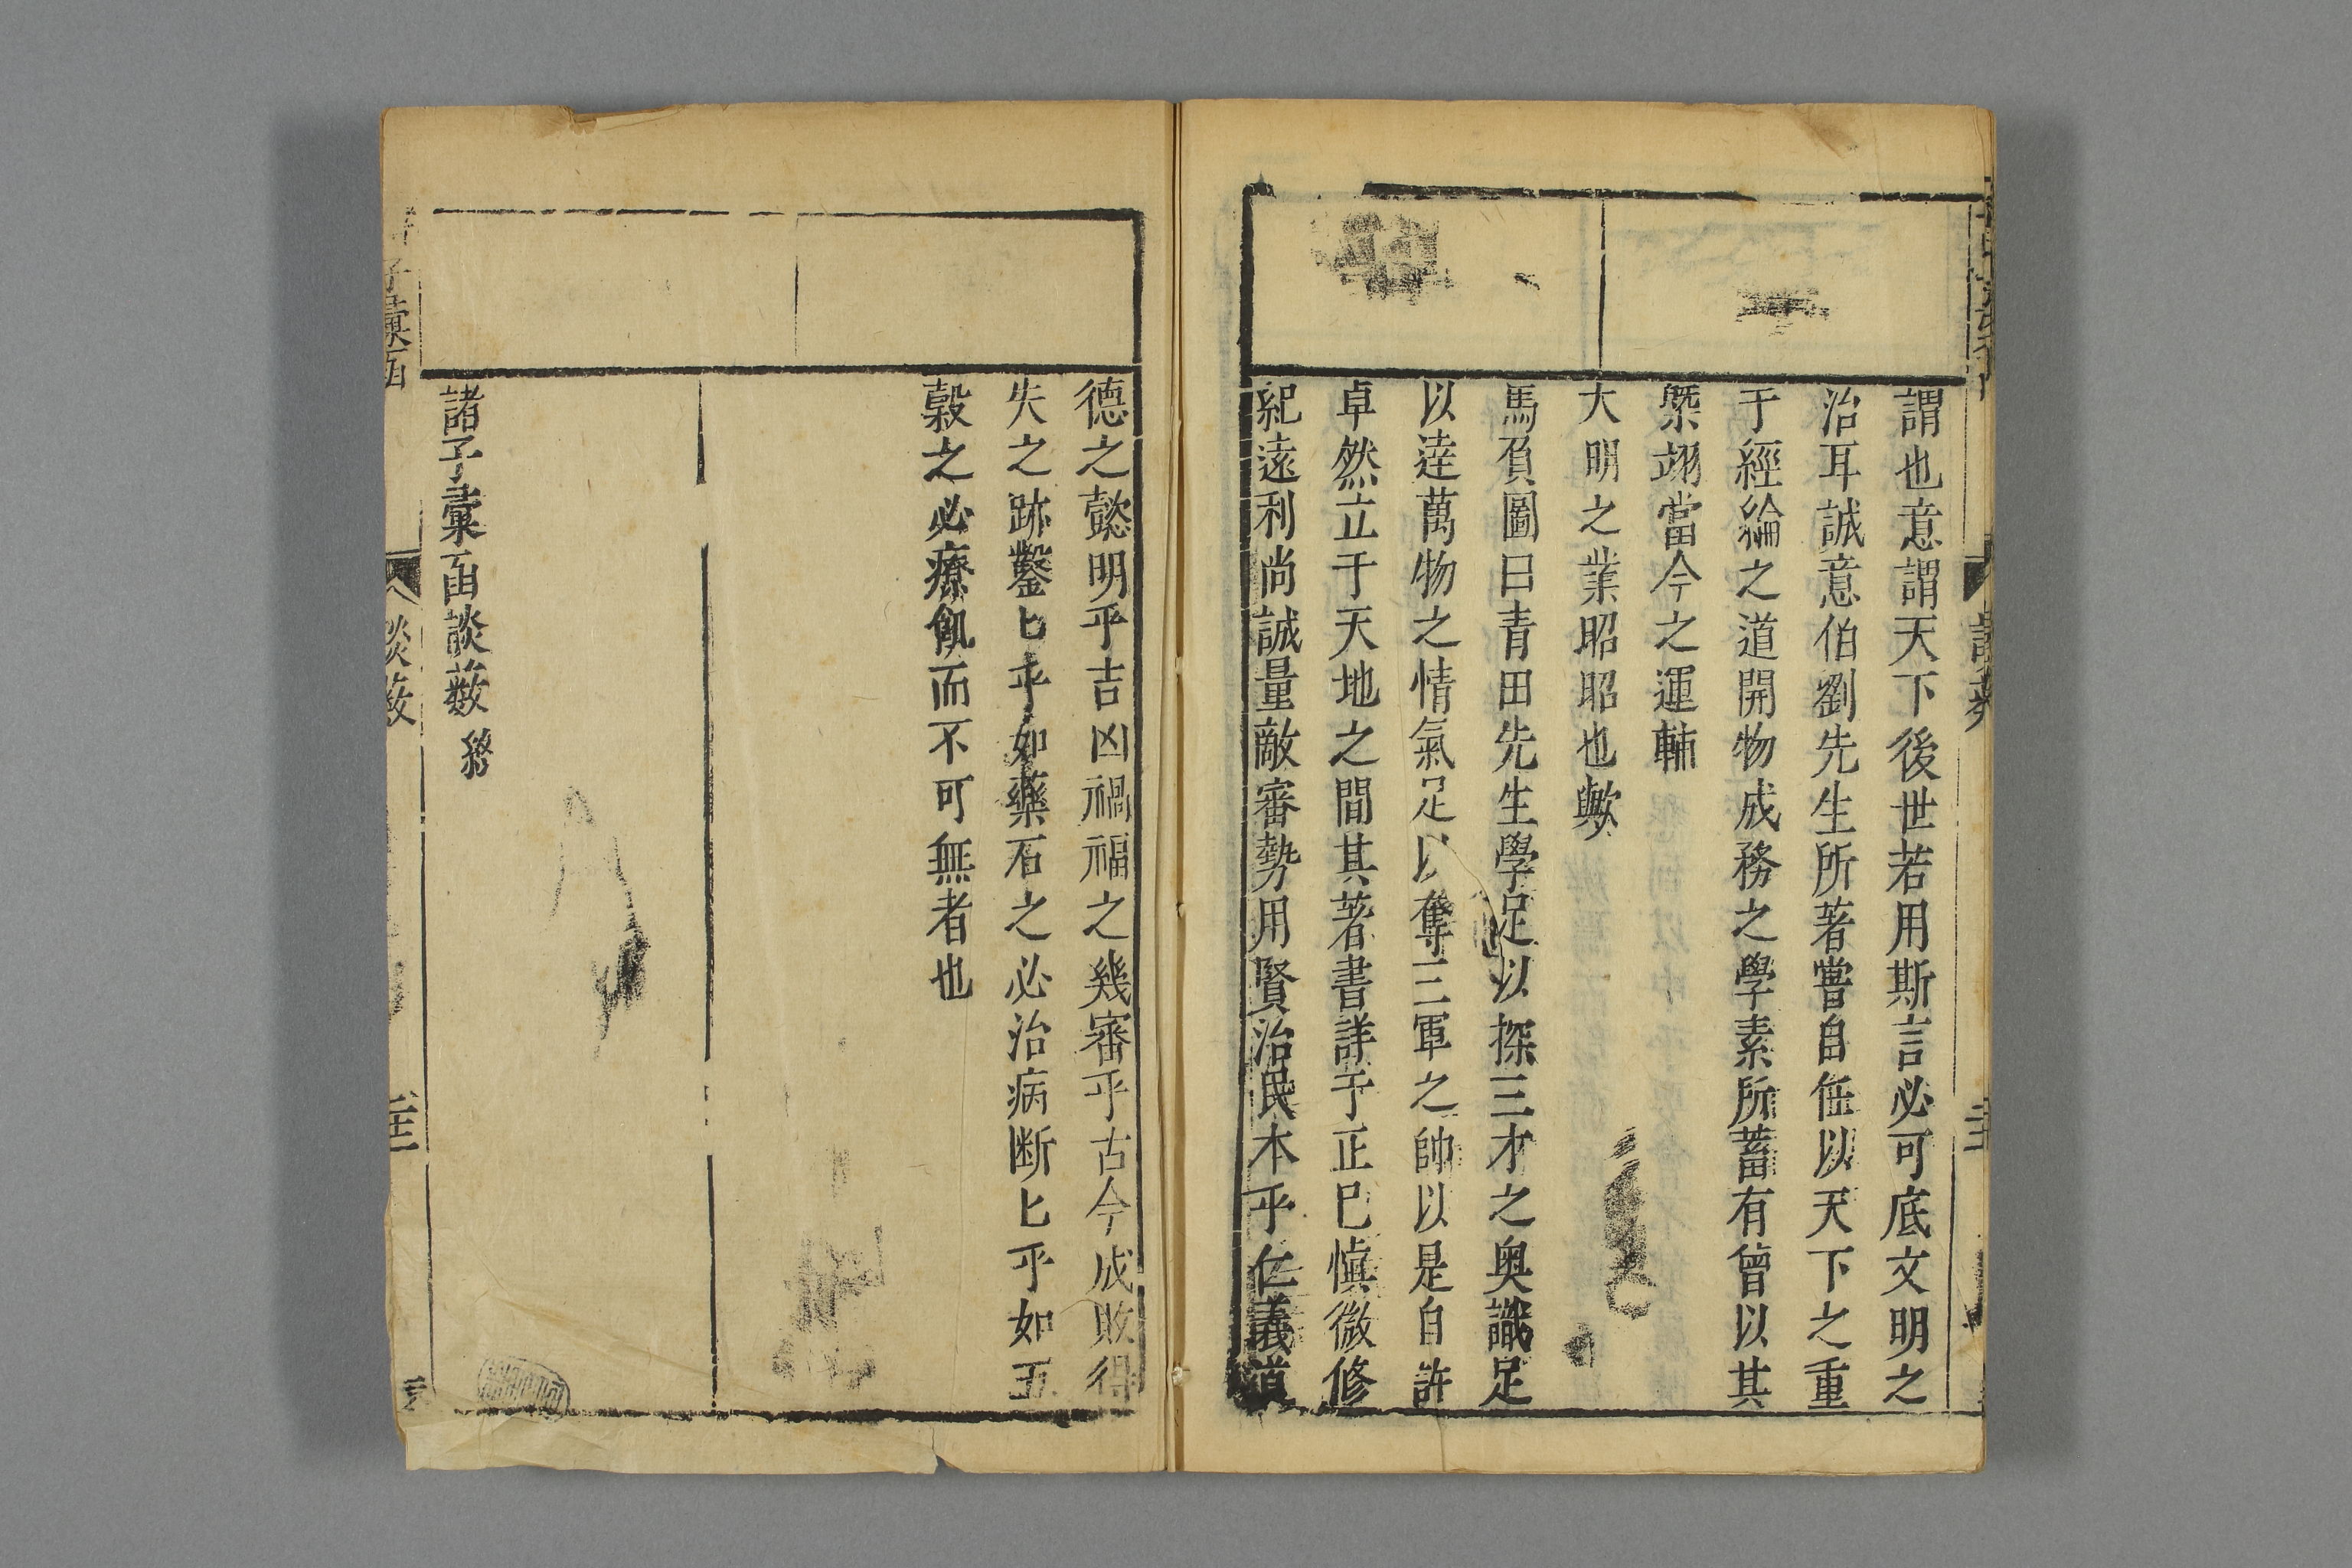 謂也意謂天下後世若用斯言必可底文明之
治耳誠意伯劉先生所著嘗自任以天下之重
于經綸之道開物成務之學素所蓄有曾以其
槩翊當今之運輔
大明之業昭昭也歟
馬負圖曰青田先生學足以探三才之奥識足
以逹萬物之情氣足以奪三軍之帥以是自許
卓然立于天地之間其著書詳于正巳愼微修
紀遠利尚誠量敵審勢用賢治民本乎仁義道
德之懿明乎吉凶禍福之幾審乎古今成敗得
失之跡鑿匕乎如藥石之必治病断匕乎如五
糓之必療飢而不可無者也
諸子彚函談藪 終
子彚函
談藪